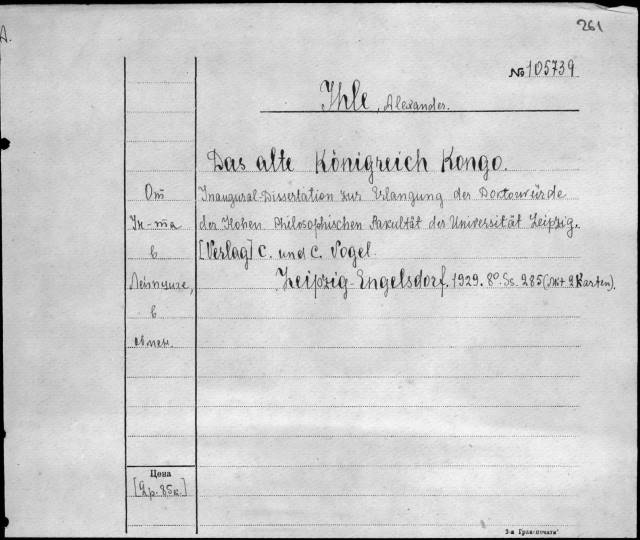 261
A.
№ 105739
Ihle, Alexander.
Das alte Königreich Kongo.
Inaugural-Dissertation zur Erlangung der Doktorwürde
der Hohen Philosophischen Fakultät der Universität Leipzig.
[Verlag] C. und C. Vogel.
Leipzig-Engelsdorf. 1929. 8º. Ss. 285 + 2 Karten).
От
Ин-та
в
Лейпциге,
в
обмен.
Цена
[2р. 85к.]